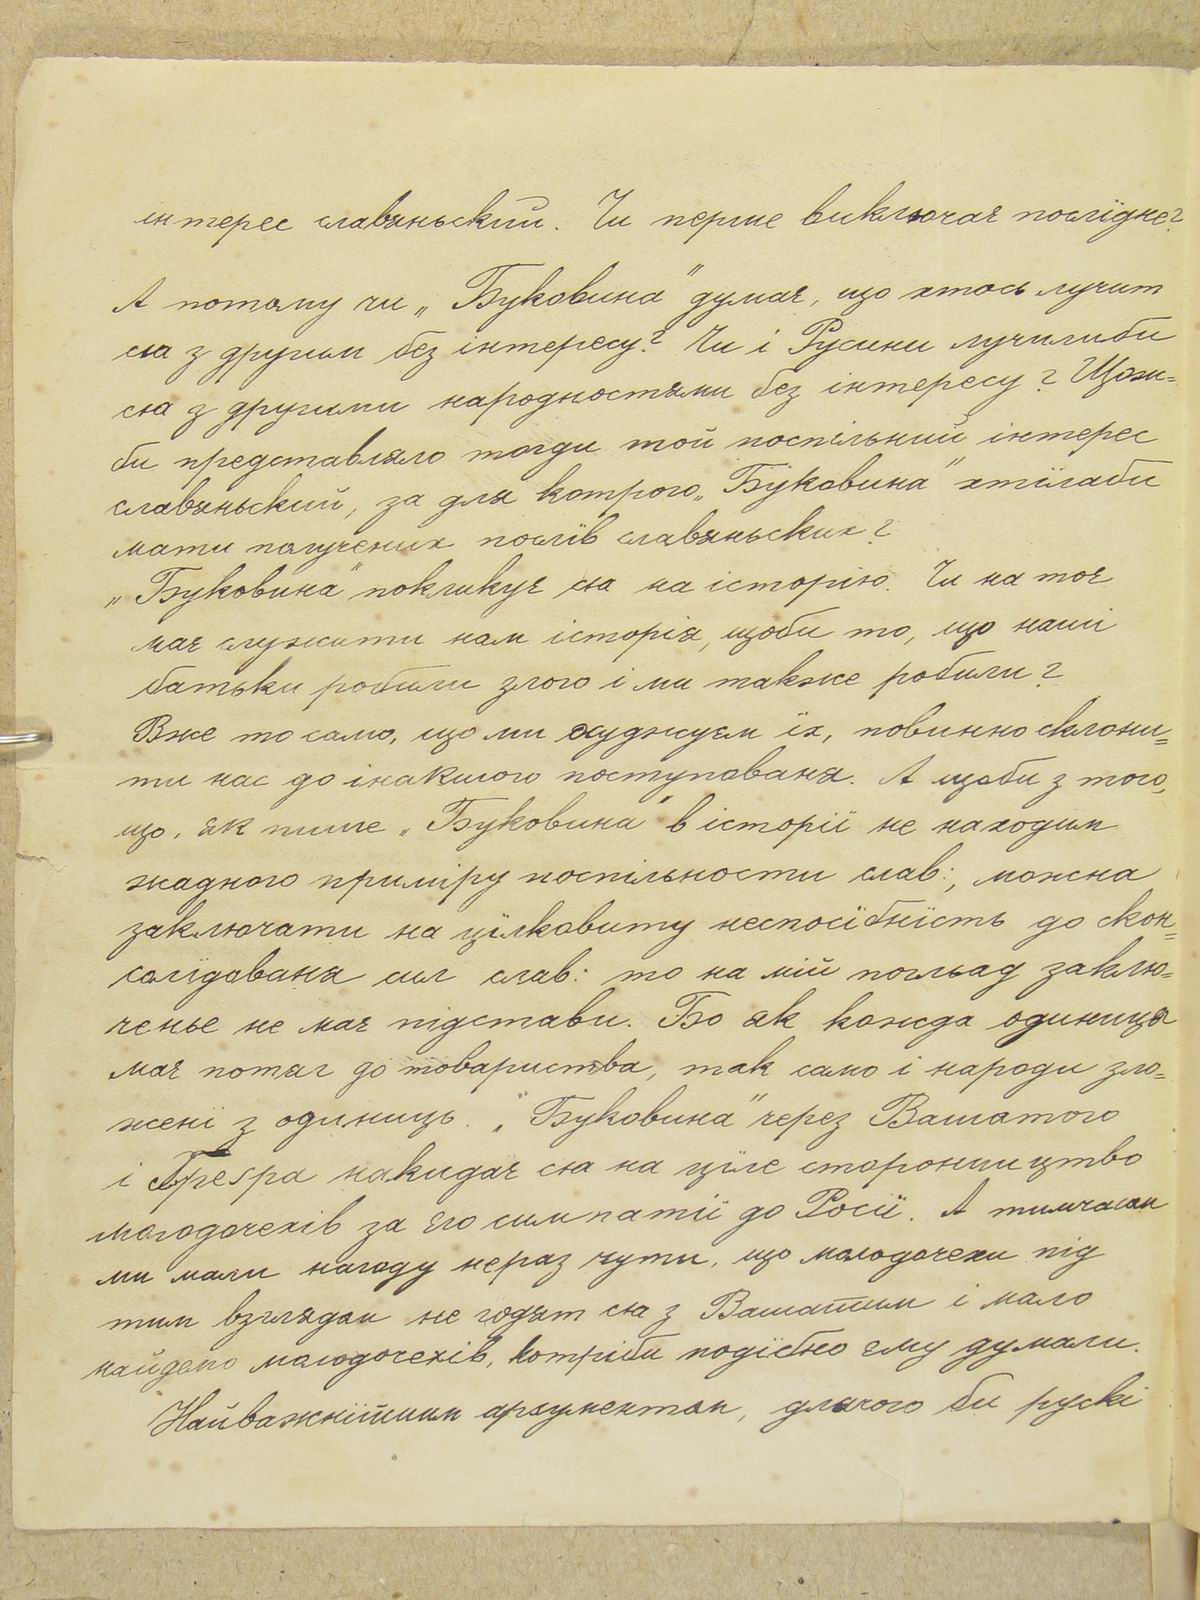 інтерес славяньский. Чи перше виключає послїдне?
А потому чи „Буковина" думає, що хтось лучит
ся з другим без інтересу? Чи і Русини лучилиби
ся з другими народностями без інтересу? Щож-
би представляло тогди той поспільний інтерес
славяньский, за для котрого „Буковина" хтїлаби
мати получених послїв славяньских?
„Буковина" покликує ся на історію. Чи на тоє
має служити нам історія, щоби то, що наші
батьки робили злого і ми также робили?
Вже то само, що ми осуджуєм їх, повинно склони=
ти нас до інакшого поступованя. А щоби з того,
що, як пише „Буковина" в історії не находим
жадного приміру поспільности слав:, можна
заключати на цїлковиту неспосібність до скон=
солїдованя сил слав: то на мій погляд заклю=
ченьє не має підстави. Бо як кожда одиниця
має потяг до товариства, так само і народи зло=
жені з одиниць. „Буковина" через Вашатого
і Ґреґра накидає ся на цїле сторонництво
молодочехів за єго симпатії до Росії. А тимчасом
ми мали нагоду нераз чути, що молодочехи під
тим взглядом не годят ся з Вашатим і мало
найдено молодочехів, котріби подібно єму думали.
Найважнїйшим арґументом, длячого би рускі